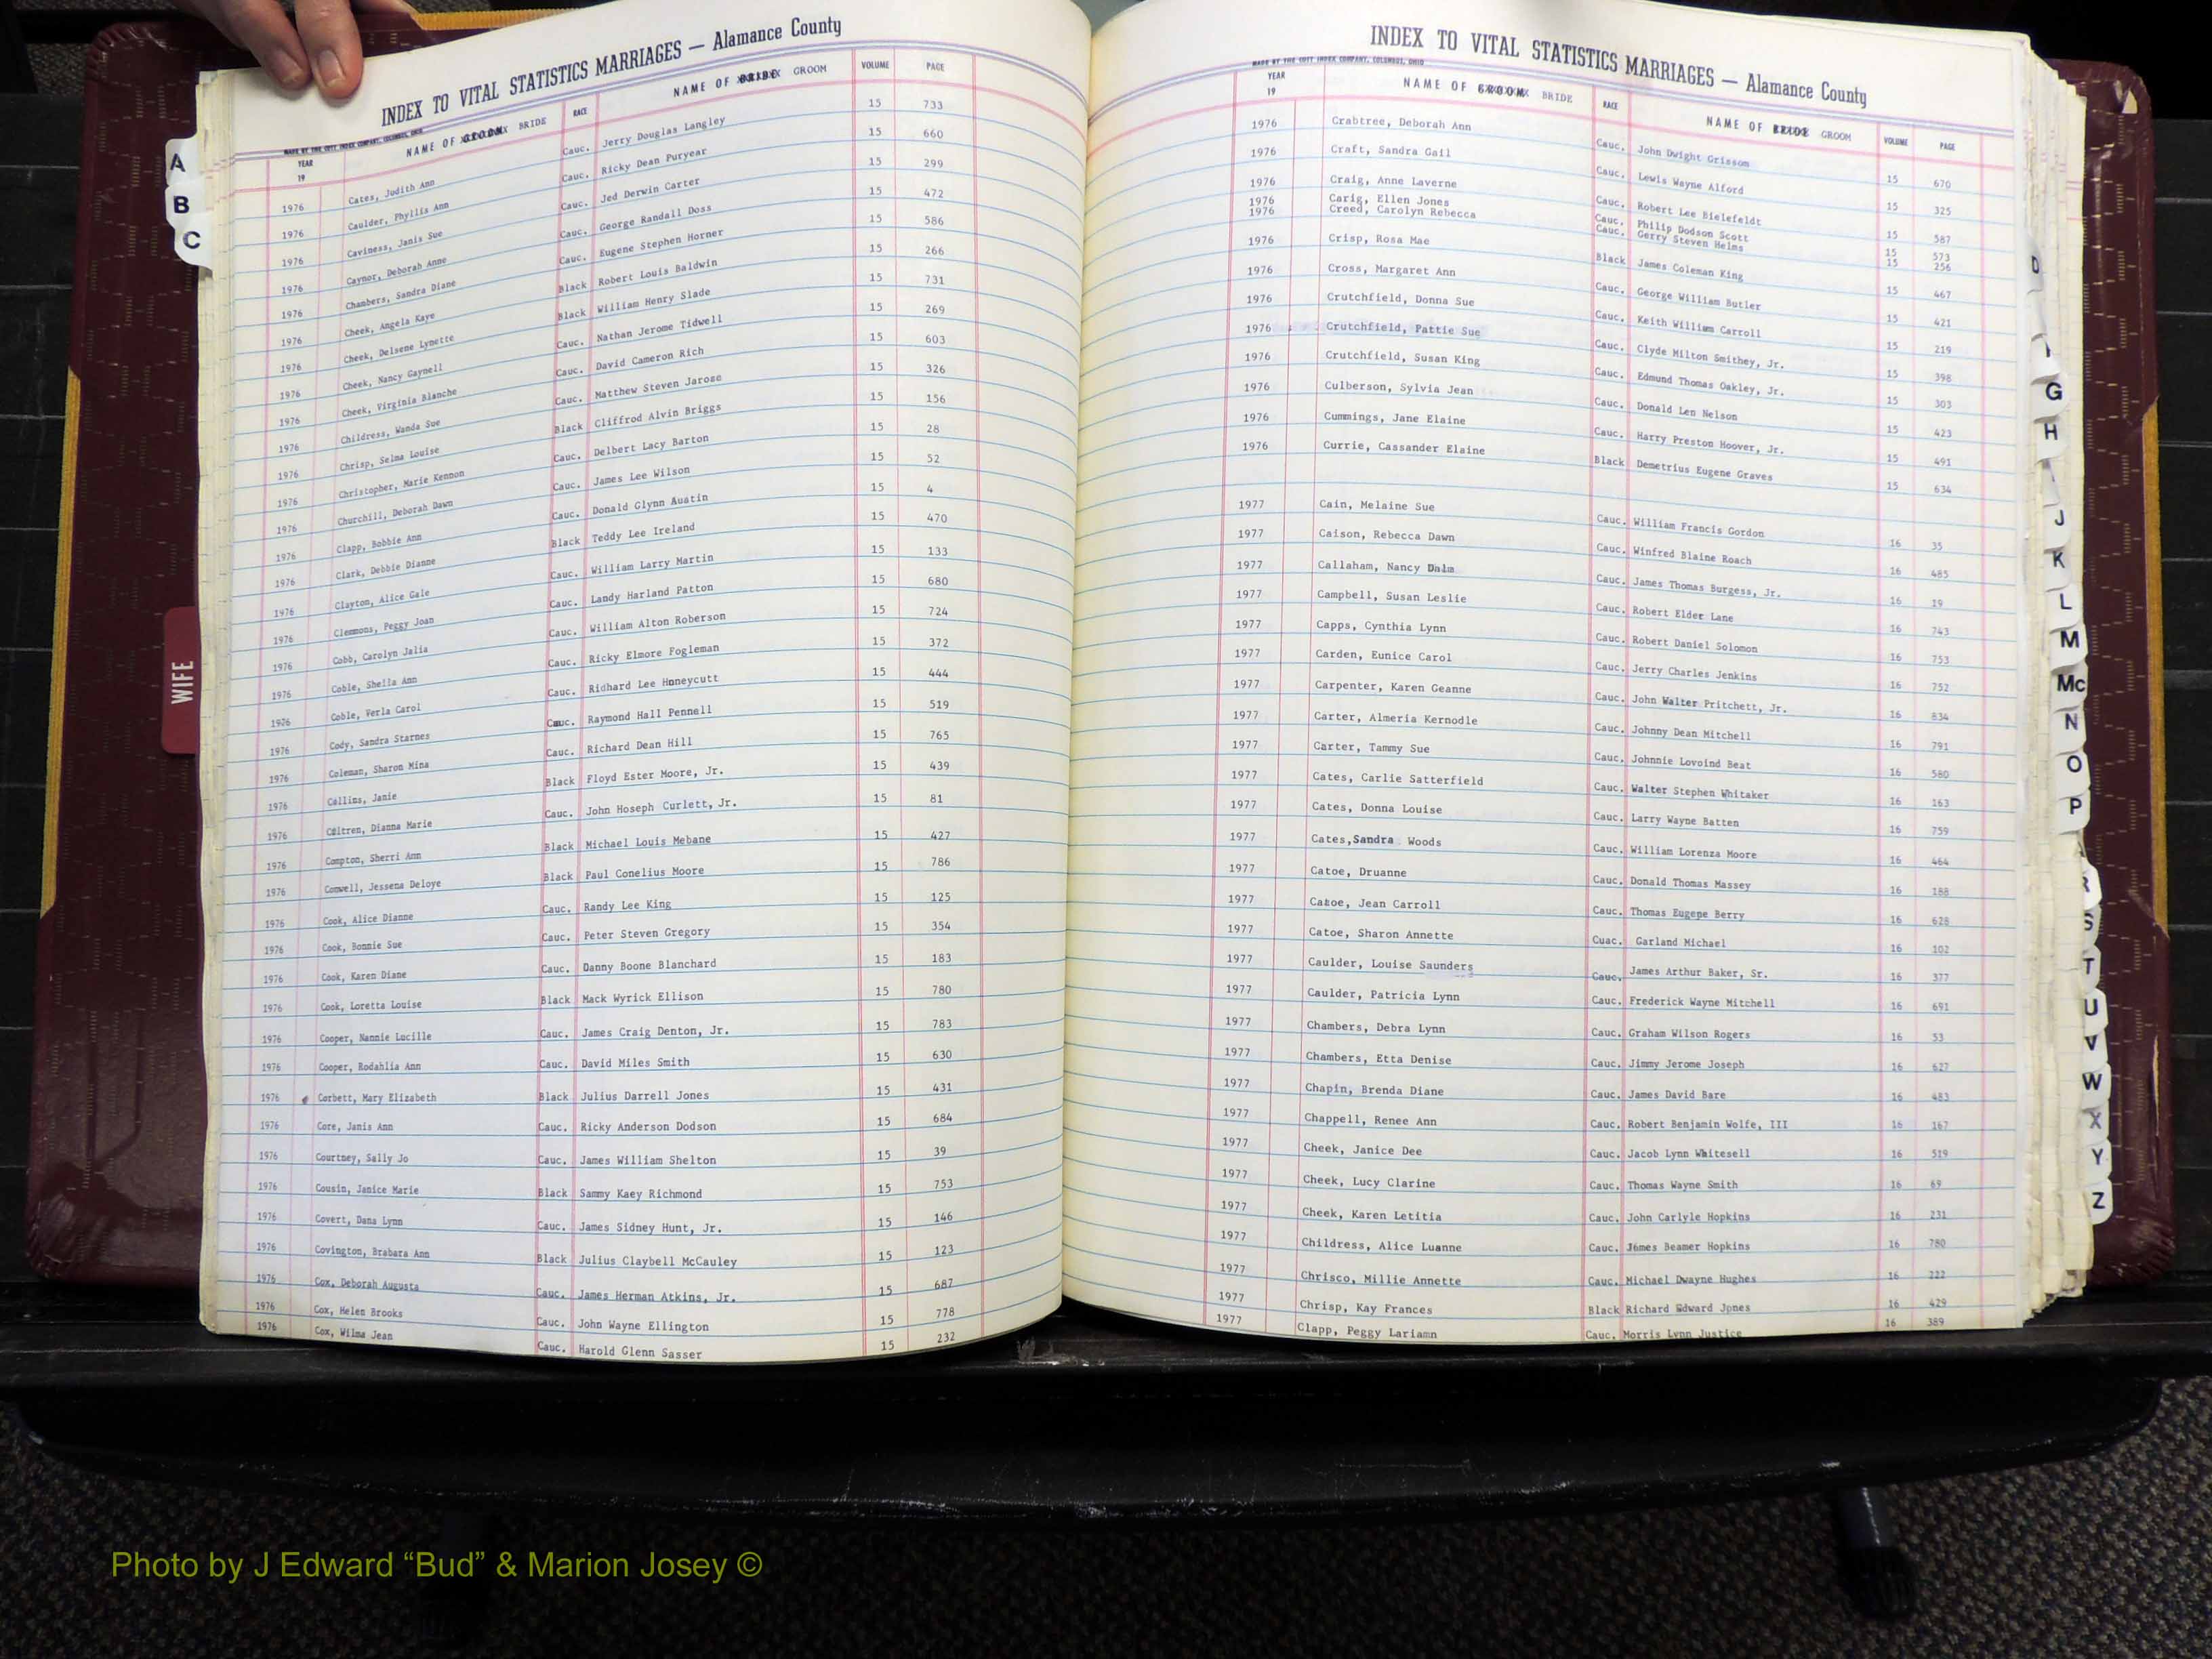 INDEX TO VITAL STATISTICS MARRIAGES — Alamance County
MADE BY THE COTT INDEX COMPANY, COLUMBUS, OHIO
YEAR 19 NAME OF GROOM BRIDE RACE NAME OF BRIDE GROOM VOLUME PAGE
1976 Cates, Judith Ann Cauc. Jerry Douglas Langley 15 733
1976 Caulder, Phyllis Ann Cauc. Ricky Dean Puryear 15 660
1976 Caviness, Janis Sue Cauc. Jed Derwin Carter 15 299
1976 Caynor, Deborah Anne Cauc. George Randall Doss 15 472
1976 Chambers, Sandra Diane Cauc. Eugene Stephen Horner 15 586
1976 Cheek, Angela Kaye Black Robert Louis Baldwin 15 266
1976 Cheek, Delsene Lynette Black William Henry Slade 15 731
1976 Cheek, Nancy Gaynell Cauc. Nathan Jerome Tidwell 15 269
1976 Cheek, Virginia Blanche Cauc. David Cameron Rich 15 603
1976 Childress, Wanda Sue Cauc. Matthew Steven Jarose 15 326
1976 Chrisp, Selma Louise Black Cliffrod Alvin Briggs 15 156
1976 Christopher, Marie Kennon Cauc. Delbert Lacy Barton 15 28
1976 Churchill, Deborah Dawn Cauc. James Lee Wilson 15 52
1976 Clapp, Bobbie Ann Cauc. Donald Glynn Austin 15 4
1976 Clark, Debbie Dianne Black Teddy Lee Ireland 15 470
1976 Clayton, Alice Gale Cauc. William Larry Martin 15 133
1976 Clemmons, Peggy Joan Cauc. Landy Harland Patton 15 680
1976 Cobb, Carolyn Jalia Cauc. William Alton Roberson 15 724
1976 Coble, Sheila Ann Cauc. Ricky Elmore Fogleman 15 372
1976 Coble, Verla Carol Cauc. Richard Lee Honeycutt 15 444
1976 Cody, Sandra Starnes Cauc. Raymond Hall Pennell 15 519
1976 Coleman, Sharon Mina Cauc. Richard Dean Hill 15 765
1976 Collins, Janie Black Floyd Ester Moore, Jr. 15 439
1976 Coltren, Dianna Marie Cauc. John Hoseph Curlett, Jr. 15 81
1976 Compton, Sherri Ann Black Michael Louis Mebane 15 427
1976 Comwell, Jessena Deloye Black Paul Conelius Moore 15 786
1976 Cook, Alice Dianne Cauc. Randy Lee King 15 125
1976 Cook, Bonnie Sue Cauc. Peter Steven Gregory 15 354
1976 Cook, Karen Diane Cauc. Danny Boone Blanchard 15 183
1976 Cook, Loretta Louise Black Mack Wyrick Ellison 15 780
1976 Cooper, Nannie Lucille Cauc. James Craig Denton, Jr. 15 783
1976 Cooper, Rodahlia Ann Cauc. David Miles Smith 15 630
1976 Corbett, Mary Elizabeth Black Julius Darrell Jones 15 431
1976 Core, Janis Ann Cauc. Ricky Anderson Dodson 15 684
1976 Courtney, Sally Jo Cauc. James William Shelton 15 39
1976 Cousin, Janice Marie Black Sammy Kaey Richmond 15 753
1976 Covert, Dana Lynn Cauc. James Sidney Hunt, Jr. 15 146
1976 Covington, Brabara Ann Black Julius Claybell McCauley 15 123
1976 Cox, Deborah Augusta Cauc. James Herman Atkins, Jr. 15 687
1976 Cox, Helen Brooks Cauc. John Wayne Ellington 15 778
1976 Cox, Wilma Jean Cauc. Harold Glenn Sasser 15 232
A
B
C
WIFE
INDEX TO VITAL STATISTICS MARRIAGES — Alamance County
MADE BY THE COTT INDEX COMPANY, COLUMBUS, OHIO
YEAR 19 NAME OF GROOM BRIDE RACE NAME OF BRIDE GROOM VOLUME PAGE
1976 Crabtree, Deborah Ann Cauc. John Dwight Grissom 15 670
1976 Craft, Sandra Gail Cauc. Lewis Wayne Alford 15 325
1976 Craig, Anne Laverne Cauc. Robert Lee Bielefeldt 15 587
1976 Carig, Ellen Jones Cauc. Philip Dodson Scott 15 573
1976 Creed, Carolyn Rebecca Cauc. Gerry Steven Helms 15 256
1976 Crisp, Rosa Mae Black James Coleman King 15 467
1976 Cross, Margaret Ann Cauc. George William Butler 15 421
1976 Crutchfield, Donna Sue Cauc. Keith William Carroll 15 219
1976 Crutchfield, Pattie Sue Cauc. Clyde Milton Smithey, Jr. 15 398
1976 Crutchfield, Susan King Cauc. Edmund Thomas Oakley, Jr. 15 303
1976 Culberson, Sylvia Jean Cauc. Donald Len Nelson 15 423
1976 Cummings, Jane Elaine Cauc. Harry Preston Hoover, Jr. 15 491
1976 Currie, Cassander Elaine Black Demetrius Eugene Graves 15 634
1977 Cain, Melaine Sue Cauc. William Francis Gordon 16 35
1977 Caison, Rebecca Dawn Cauc. Winfred Blaine Roach 16 485
1977 Callaham, Nancy Cauc. James Thomas Burgess, Jr. 16 19
1977 Campbell, Susan Leslie Cauc. Robert Elder Lane 16 743
1977 Capps, Cynthia Lynn Cauc. Robert Daniel Solomon 16 753
1977 Carden, Eunice Carol Cauc. Jerry Charles Jenkins 16 752
1977 Carpenter, Karen Geanne Cauc. John Walter Pritchett, Jr. 16 834
1977 Carter, Almeria Kernodle Cauc. Johnny Dean Mitchell 16 791
1977 Carter, Tammy Sue Cauc. Johnnie Lovoind Beat 16 580
1977 Cates, Carlie Satterfield Cauc. Walter Stephen Whitaker 16 163
1977 Cates, Donna Louise Cauc. Larry Wayne Batten 16 759
1977 Cates, Sandra Woods Cauc. William Lorenza Moore 16 464
1977 Catoe, Druanne Cauc. Donald Thomas Massey 16 188
1977 Catoe, Jean Carroll Cauc. Thomas Eugene Berry 16 628
1977 Catoe, Sharon Annette Cuac. Garland Michael 16 102
1977 Caulder, Louise Saunders Cauc. James Arthur Baker, Sr. 16 377
1977 Caulder, Patricia Lynn Cauc. Frederick Wayne Mitchell 16 691
1977 Chambers, Debra Lynn Cauc. Graham Wilson Rogers 16 53
1977 Chambers, Etta Denise Cauc. Jimmy Jerome Joseph 16 627
1977 Chapin, Brenda Diane Cauc. James David Bare 16 483
1977 Chappell, Renee Ann Cauc. Robert Benjamin Wolfe, III 16 167
1977 Cheek, Janice Dee Cauc. Jacob Lynn Whitesell 16 519
1977 Cheek, Lucy Clarine Cauc. Thomas Wayne Smith 16 69
1977 Cheek, Karen Letitia Cauc. John Carlyle Hopkins 16 231
1977 Childress, Alice Luanne Cauc. James Beamer Hopkins 16 780
1977 Chrisco, Millie Annette Cauc. Michael Dwayne Hughes 16 222
1977 Chrisp, Kay Frances Black Richard Edward Jones 16 429
1977 Clapp, Peggy Lariamn Cauc. Morris Lynn Justice 16 389
D
G
H
J
K
L
M
Mc
N
O
P
R
S
T
U
V
W
X
Y
Z
Photo by J Edward “Bud” & Marion Josey ©